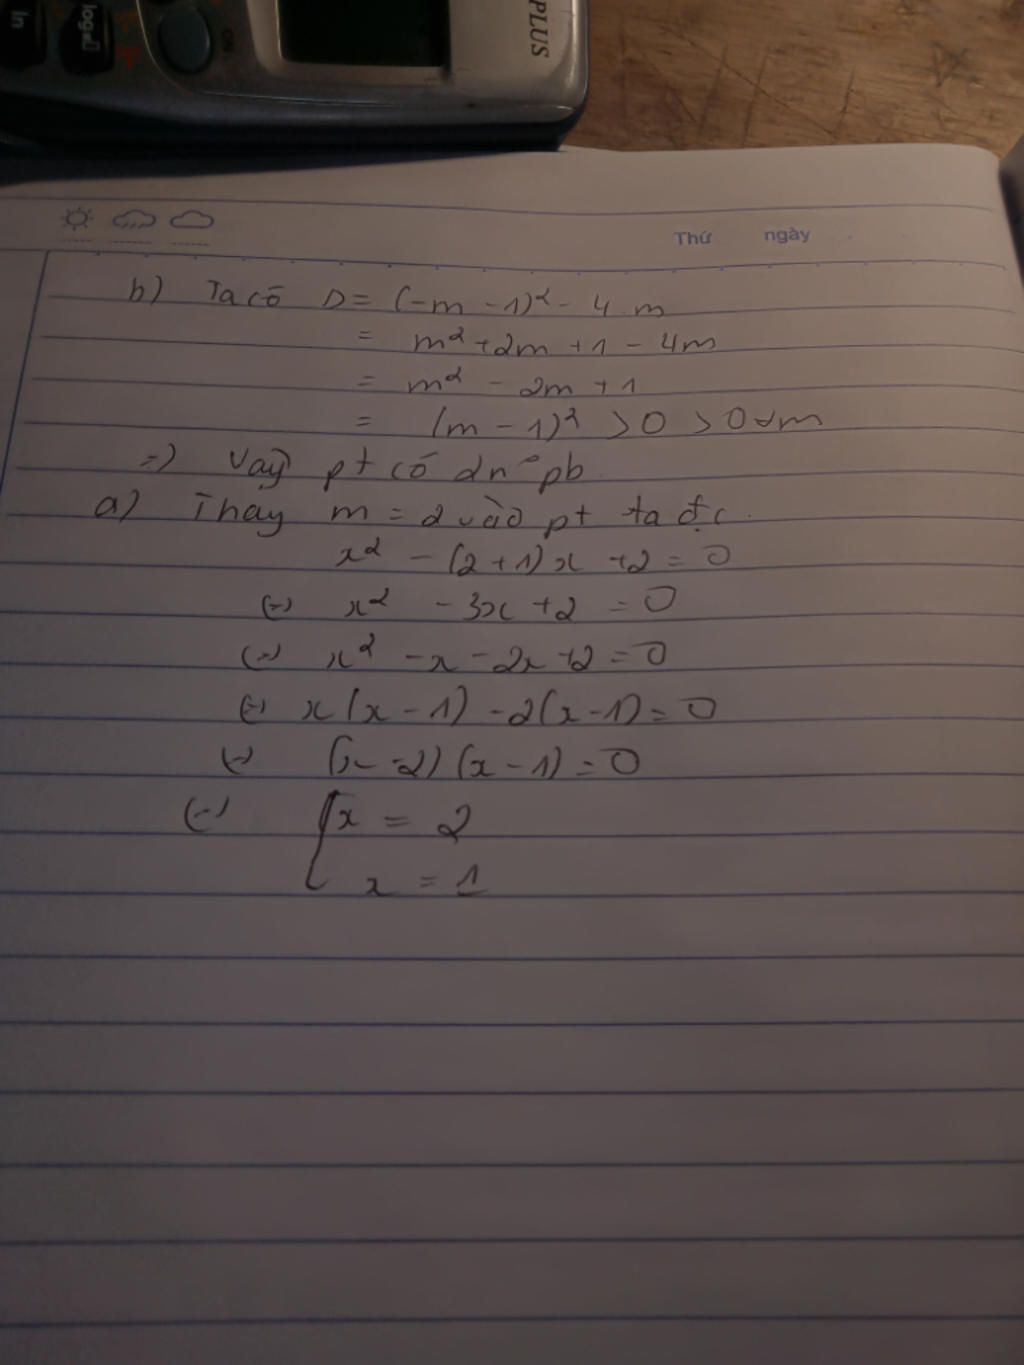 PLUS
ln
log
ON
Thứ ngày
b) Ta có Δ = (-m - 1)² - 4.m
= m² + 2m + 1 - 4m
= m² - 2m + 1
= (m - 1)² > 0 > 0 ∀m
=) Vậy pt có 2n° pb
a) Thay m = 2 vào pt ta đc
x² - (2 + 1)x + 2 = 0
(=) x² - 3x + 2 = 0
(=) x² - x - 2x + 2 = 0
(=) x(x - 1) - 2(x - 1) = 0
(=) (x - 2)(x - 1) = 0
(=) [x = 2
x = 1